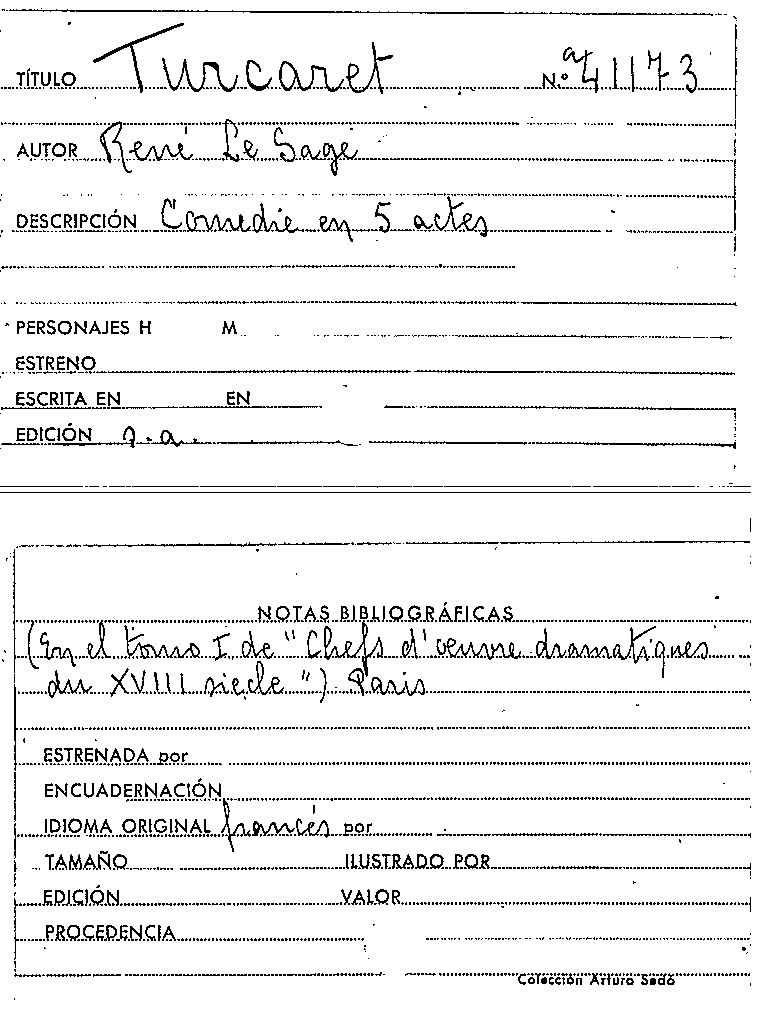 TÍTULO Turcaret N.º 41173
AUTOR René Le Sage
DESCRIPCIÓN Comedie en 5 actes
PERSONAJES H M
ESTRENO
ESCRITA EN EN
EDICIÓN s.a.
NOTAS BIBLIOGRÁFICAS
(En el tomo I de "Chefs d'oeuvre dramatiques
du XVIII siecle") Paris
ESTRENADA por
ENCUADERNACIÓN
IDIOMA ORIGINAL francés por
TAMAÑO ILUSTRADO POR
EDICIÓN VALOR
PROCEDENCIA
Colección Arturo Sedó